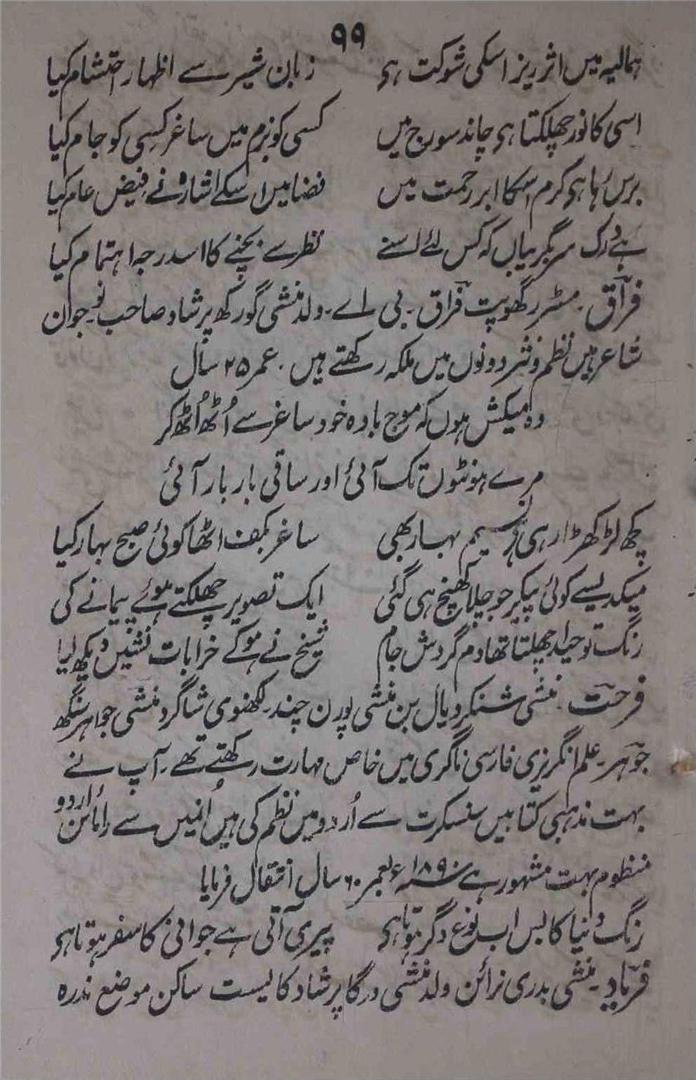 ۹۹
ہمالیہ میں اثر ریز اسکی شوکت ہی زبان شیر سے اظہار احتشام کیا
اسی کا نور جھلکتا ہی چاند سورج میں کسی کو بزم میں ساغر کسی کو جام کیا
برس رہا ہی کرم اسکا ابر رحمت میں فضا میں اسکے اشارونے فیض عام کیا
ہے درک بگریباں کہ کس لئے اسنے نظر سے بچنے کا اسدرجہ اہتمام کیا
فراق۔ مسٹر رگھوپت فراق۔ بی اے۔ ولد منشی گورکھ پرشاد صاحب نوجوان
شاعر ہیں نظم و نثر دونوں میں ملکہ رکھتے ہیں۔ عمر ۲۵ سال
وہ میکش ہوں کہ موج بادہ خود ساغر سے اُٹھ اُٹھ کر
مرے ہونٹوں تک آئی اور ساقی بار بار آئی
کچھ لڑکھڑا رہی ہی نسیم بہار بھی ساغر بکف اٹھا کوئی صبح بہار کیا
میکدیسے کوئی پیکر جو چلا کھنچ ہی گئی ایک تصویر چھلکتے ہوئے پیمانے کی
رنگ توحید اچھلتا تھا دم گردش جام شیخ نے ہو کے خرابات نشیں دیکھ لیا
فرحت۔ منشی شنکر دیال بن منشی پورن چند۔ لکھنوی شاگرد منشی جواہر سنگھ
جوہر۔ علم انگریزی فارسی ناگری میں خاص مہارت رکھتے تھے۔ آپ نے
بہت مذہبی کتابیں سنسکرت سے اُردو میں نظم کی ہیں اُنہیں سے رامائن اُردو
منظوم بہت مشہور ہے سنہ ۱۸۹۰ء بعمر ۶۰ سال انتقال فرمایا
رنگ دنیا کا بس اب نوع دگر ہوتا ہی پیری آتی ہے جوانی کا سفر ہوتا ہی
فریاد۔ منشی بدری نرائن ولد منشی درگا پرشاد کایست ساکن موضع ندرہ